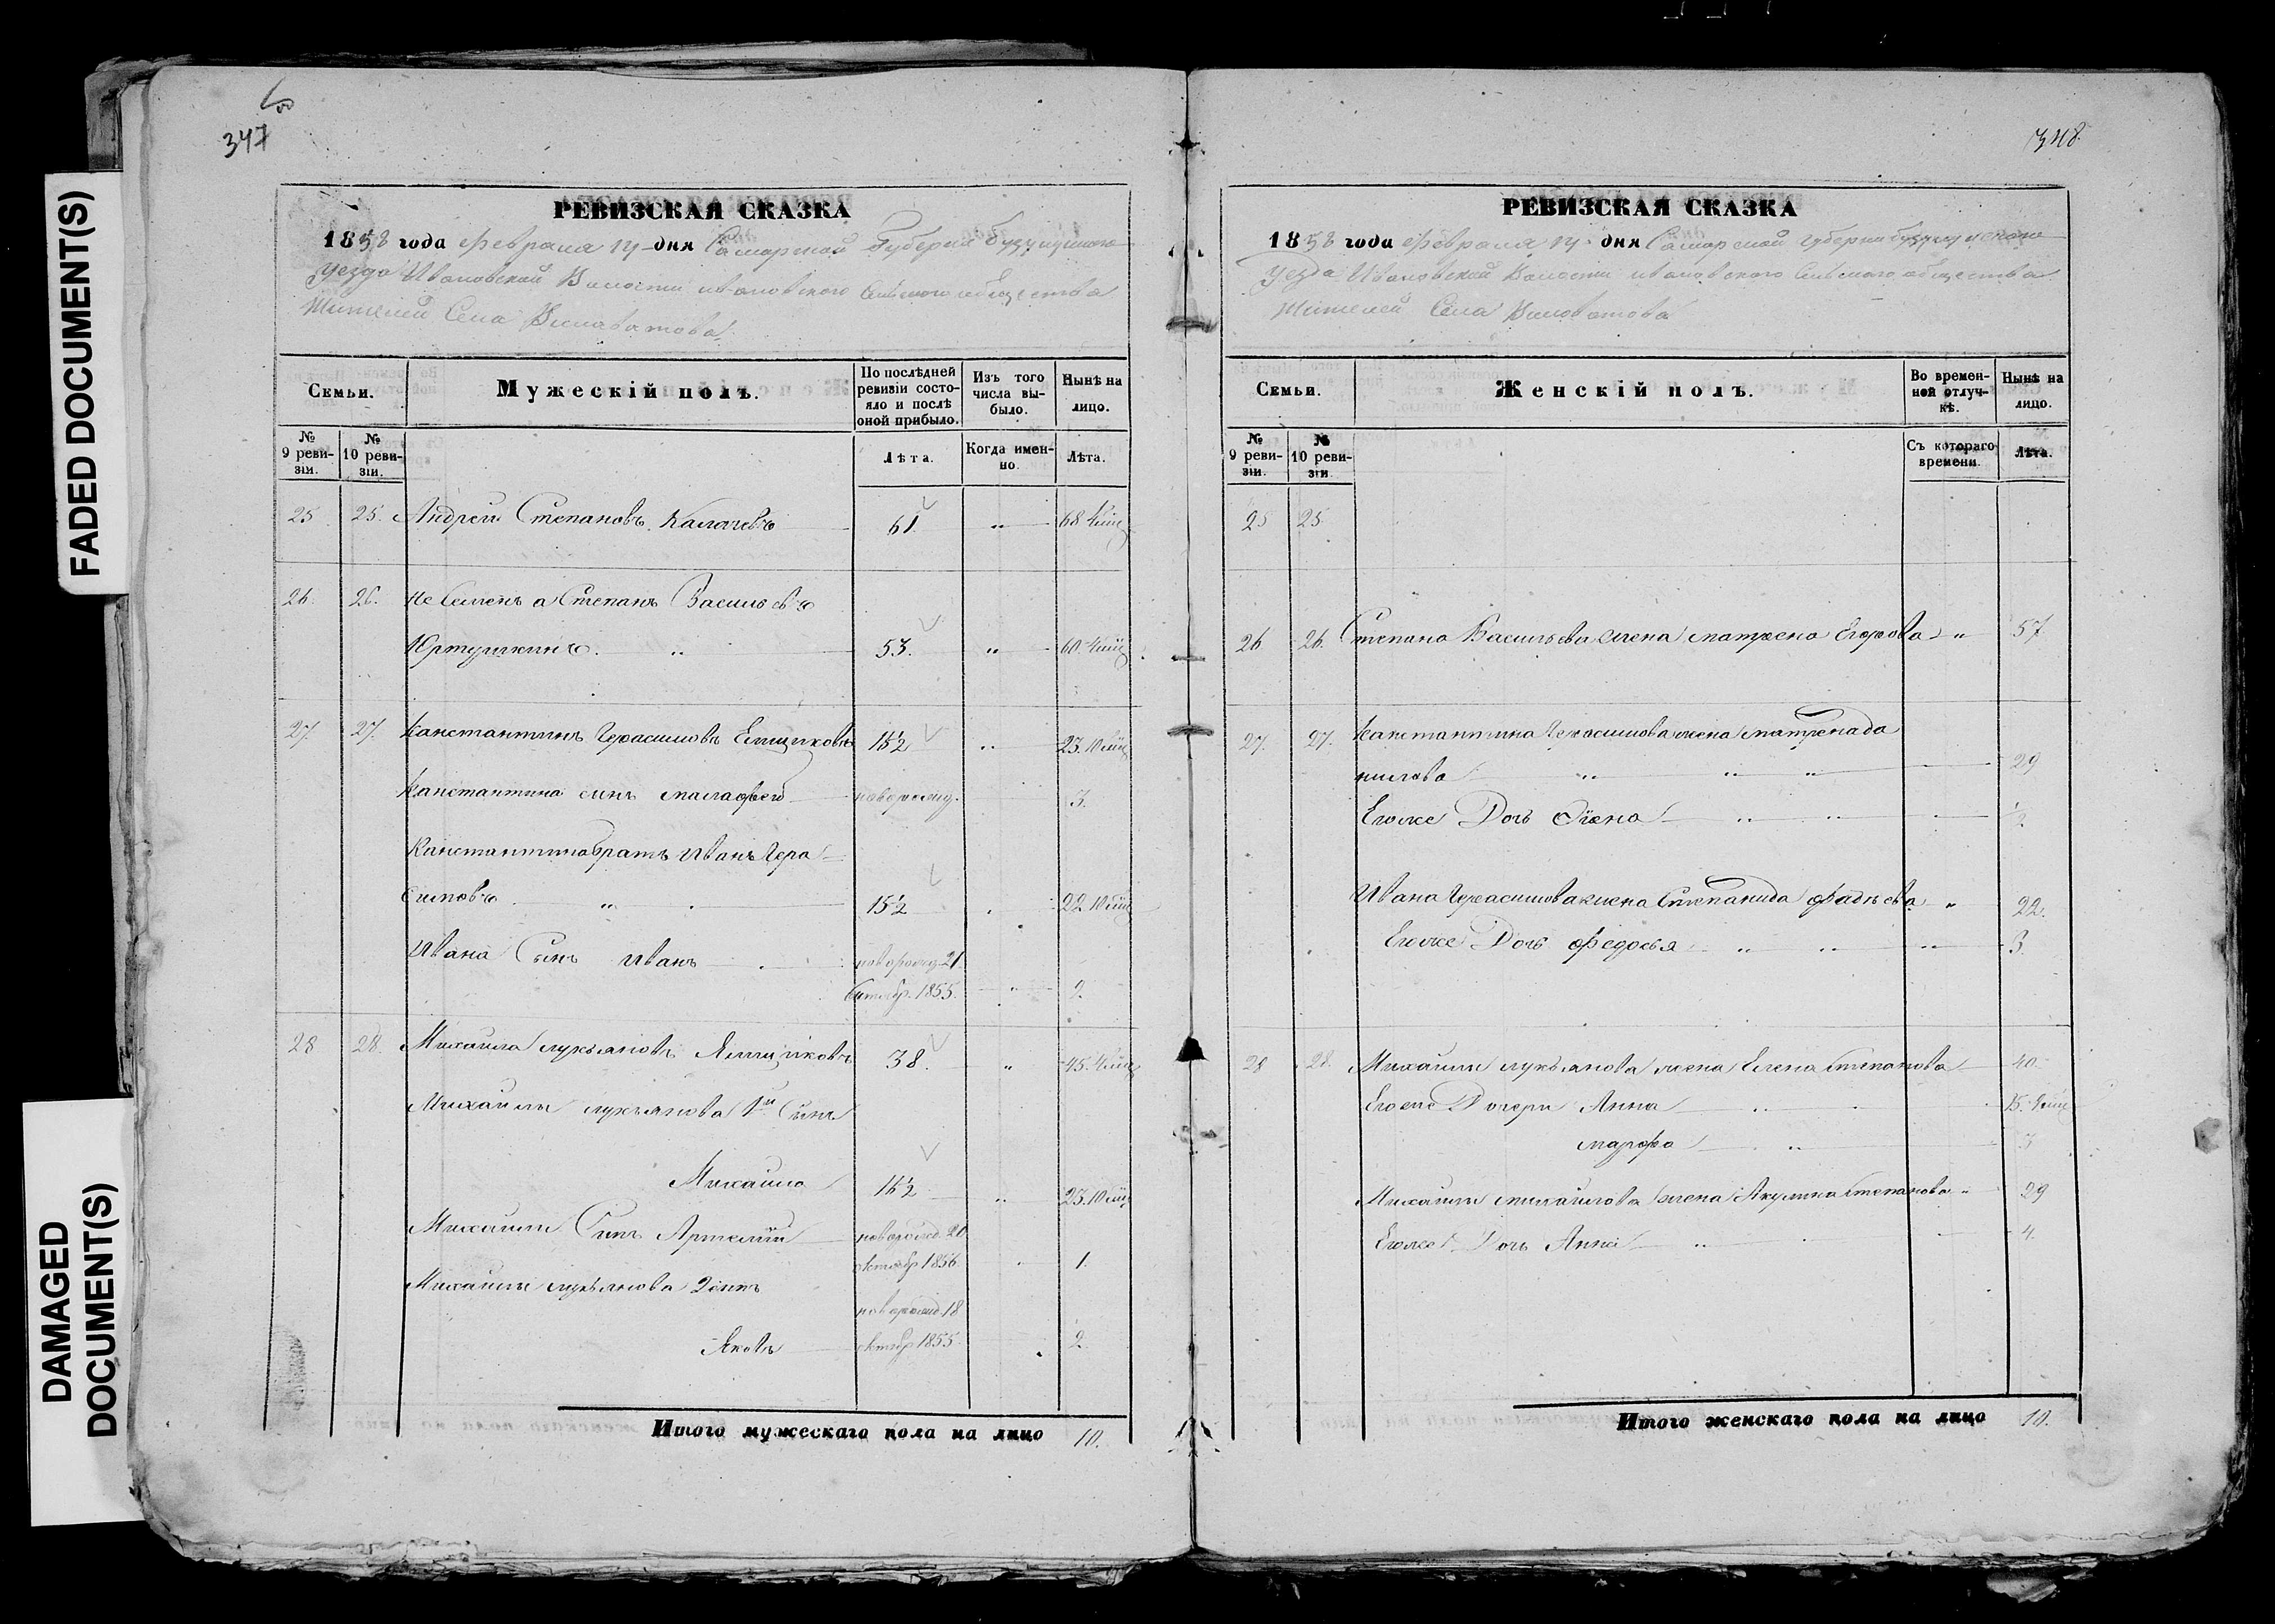 FADED DOCUMENT(S)
DAMAGED
DOCUMENT(S)
347
РЕВИЗСКАЯ СКАЗКА
1858 года февраля 14 дня Самарской Губернiи Бузулукского
Уезда Ивановской Волости ивановского Сельского общества
Жителей Села Виловатова
Семьи.
Мужескiй полъ.
По послѣдней ревизiи состояло и послѣ оной прибыло.
Изъ того числа выбыло.
Нынѣ на лицо.
№ 9 ревизiи.
№ 10 ревизiи.
Лѣта.
Когда именно.
Лѣта.
25 25. Андрей Степановъ Калачевъ 61. „ 68
26. 26. не Семенъ а Степанъ Васильевъ
Юртушкинъ. „ 53. „ 60.
27. 27. Канстантинъ Герасимовъ Емщиковъ 16½ „ 23. 10
Канстантина сынъ малафей новорожд. 3.
Канстантина братъ Иванъ Гера
симовъ „ 15½ 22 10
Ивана Сынъ Иванъ новорожд. 21
Октябр. 1855. „ 2.
28 28. Михайла лукъяновъ Ямщиковъ 38. „ 45.
Михайлы лукъянова 1й Сынъ
Михайла 16½ „ 23. 10
Михайлы Сынъ Артемiй новорожд. 20
октябр 1856. 1.
Михайлы лукъянова 2 сынъ
новорожд. 18
Яковъ октябр 1855. 2
Итого мужескаго пола на лицо 10.
348.
РЕВИЗСКАЯ СКАЗКА
1858 года февраля 14 дня Самарской губернiи бузулукского
Уезда Ивановской Волости ивановского Сельского общества
Жителей Села Виловатова
Семьи.
Женскiй полъ.
Во временной отлучкѣ.
Нынѣ на лицо.
№ 9 ревизiи.
№ 10 ревизiи.
Съ котораго времени.
Лѣта.
25 25.
26 26. Степана Васильева жена матрена Егорова „ 57
27. 27. Канстантина Герасимова жена матрена да
нилова „ „ „ 29
Егоже Дочь „ „
Ивана Герасимова жена Степанида фадѣева „ 22.
Егоже Дочь федосья „ „ „ 3.
28 28. Михайлы лукъянова жена Елена Степанова 40
Егоже Дочери Анна „ 15.
марфа „
Михайлы михайлова жена Акулина Степанова „ 29
Егоже Дочь Анна „ 4.
Итого женскаго пола на лицо 10.